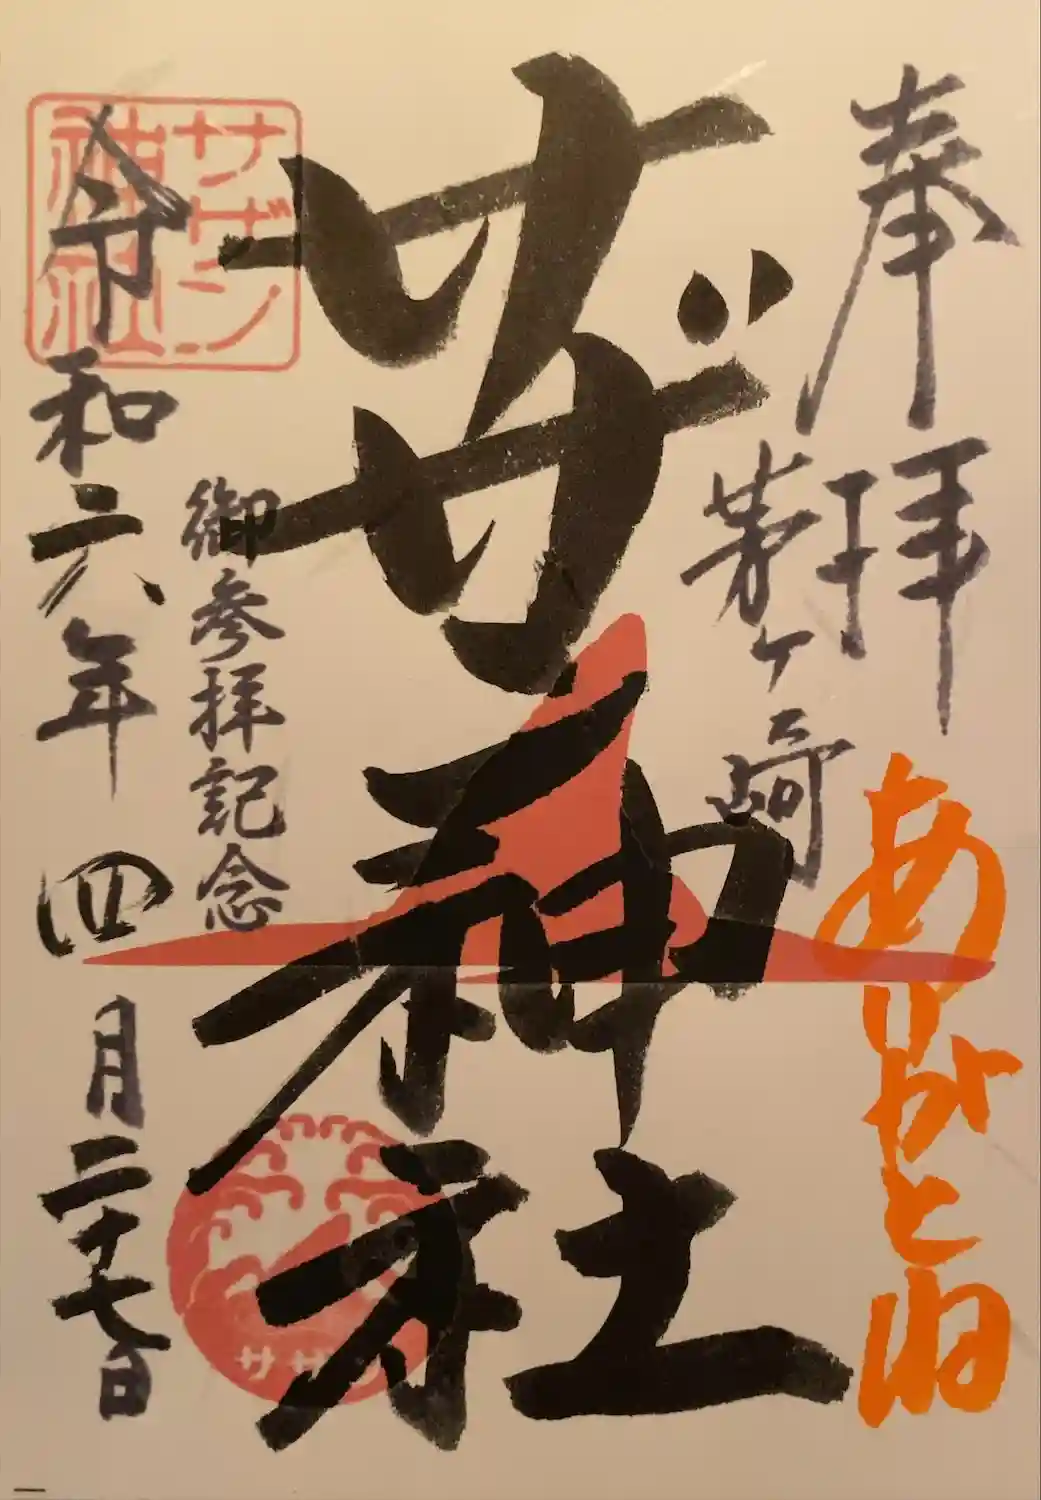 奉拝
ありがとね
茅ヶ崎
サザン神社
御参拝記念
令和六年四月二十七日
サザン
神社